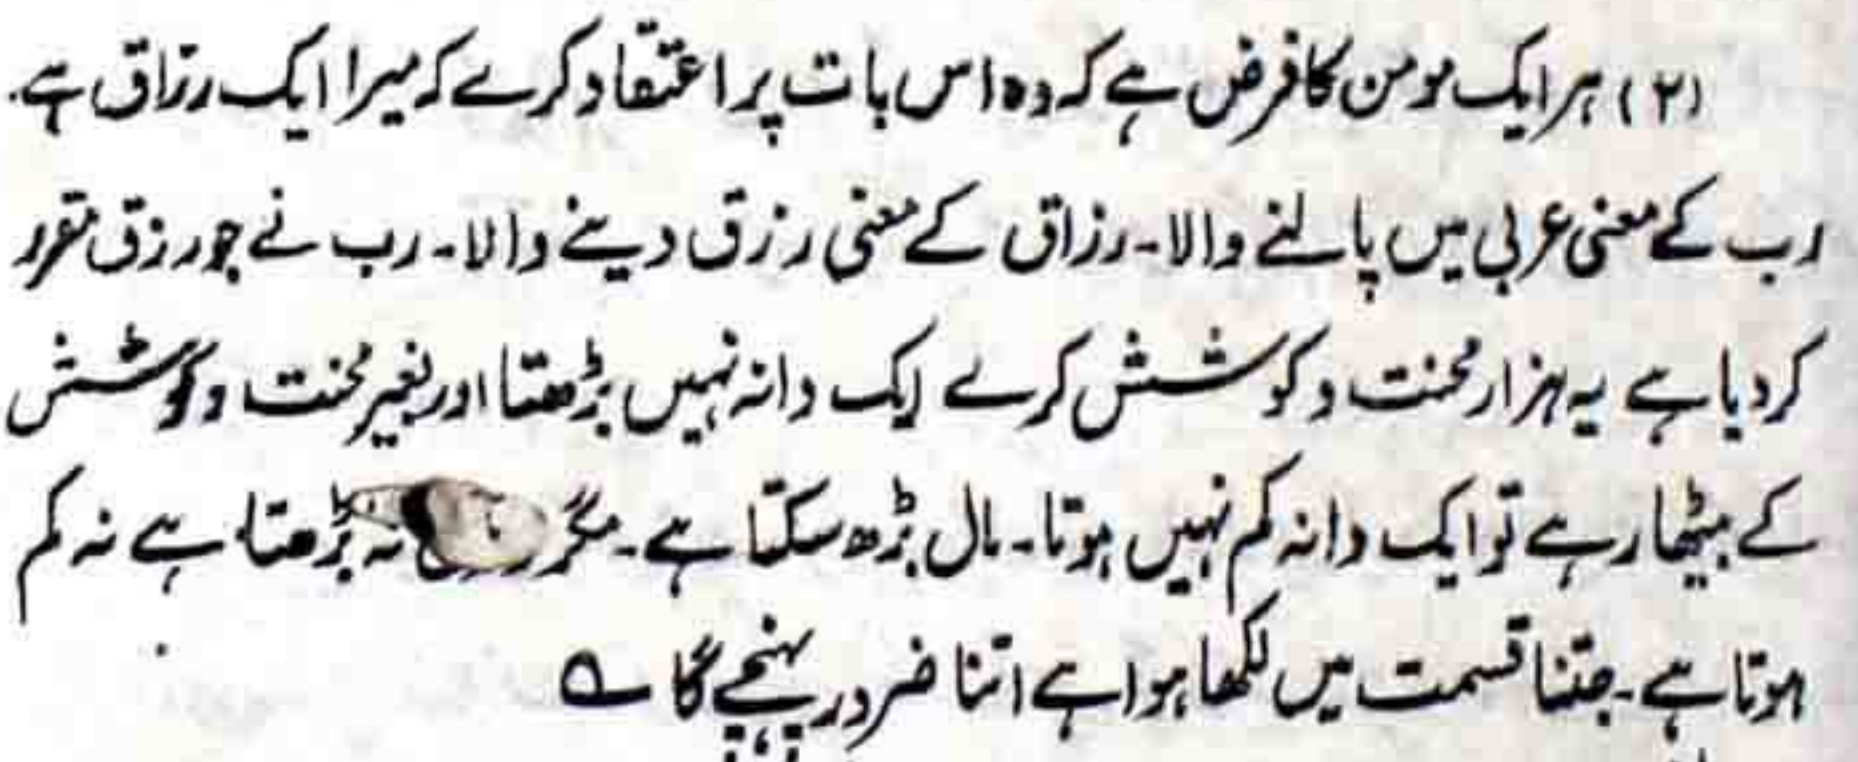 (۲) ہر ایک مومن کا فرض ہے کہ وہ اس بات پر اعتقاد کرے کہ میرا ایک رزاق ہے۔
رب کے معنی عربی میں پالنے والا۔ رزاق کے معنی رزق دینے والا۔ رب نے جو رزق مقرر
کر دیا ہے یہ ہزار محنت و کوشش کرے ایک دانہ نہیں بڑھتا اور بغیر محنت و کوشش
کے بیٹھا رہے تو ایک دانہ کم نہیں ہوتا۔ مال بڑھ سکتا ہے۔ مگر نہ بڑھتا ہے نہ کم
ہوتا ہے۔ جتنا قسمت میں لکھا ہوا ہے اتنا ضرور پہنچے گا ؎